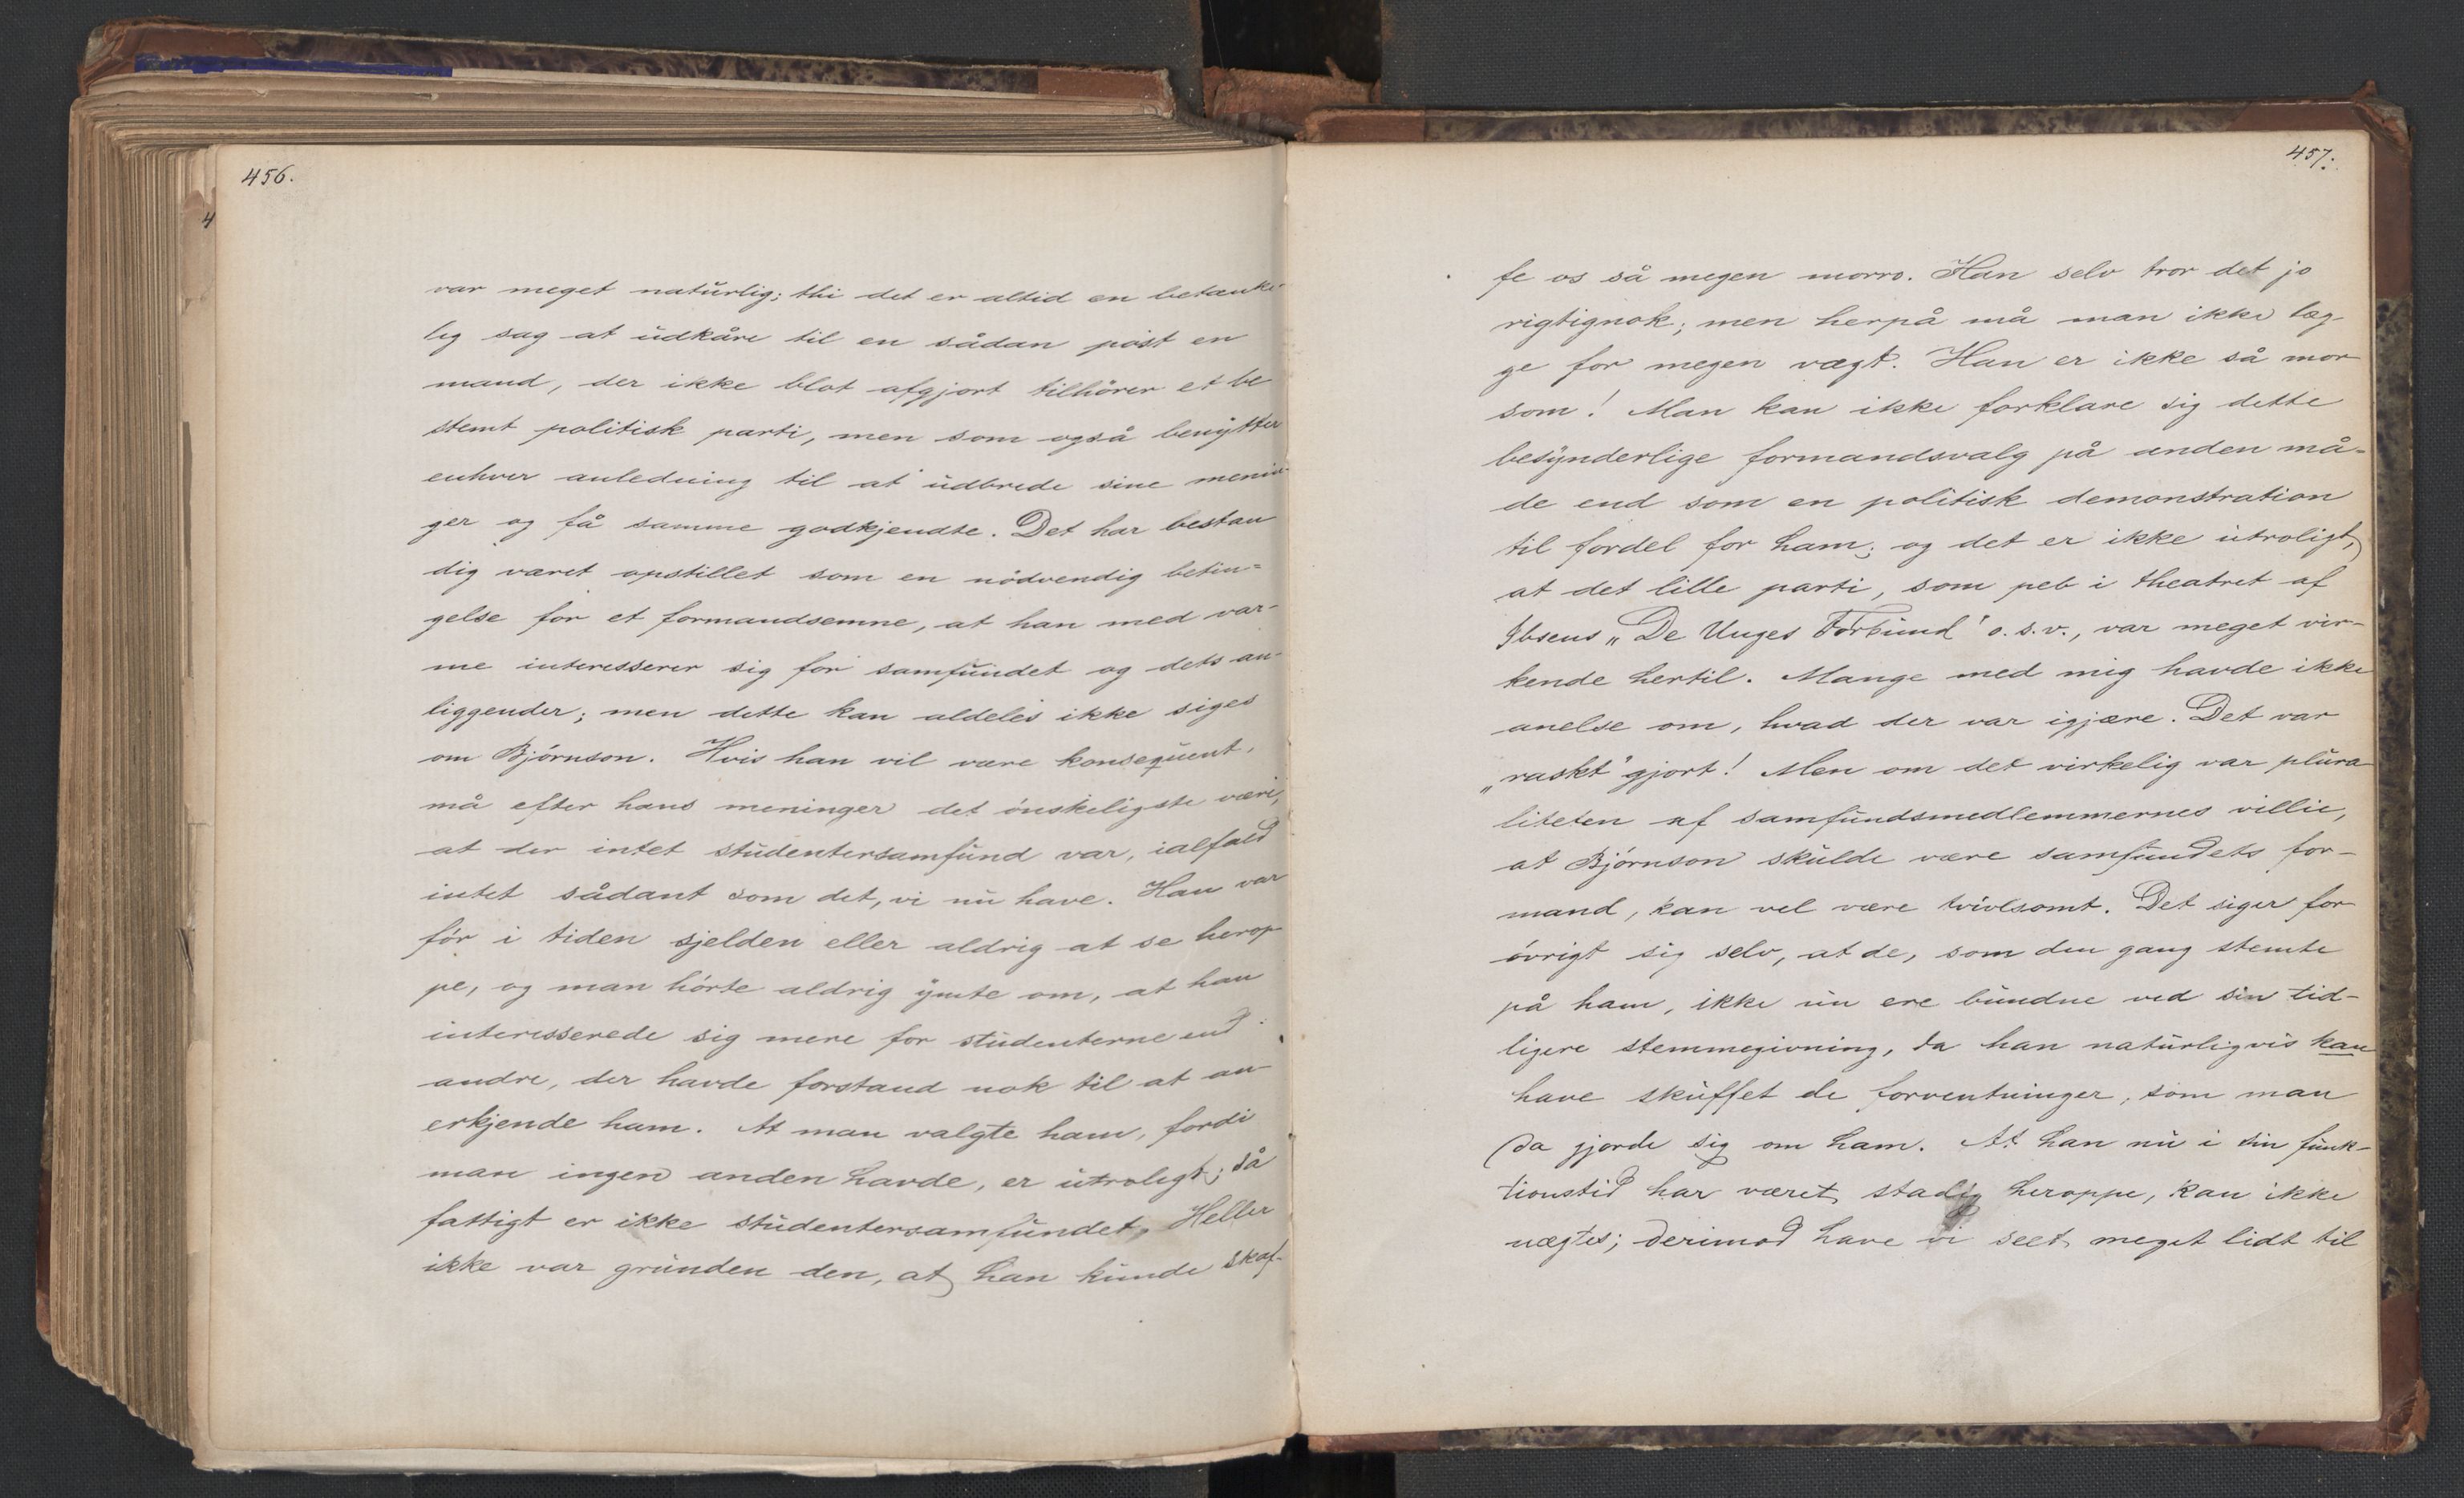 456.
var meget naturlig; thi det er altid en betænke-
lig sag at udkåre til en sådan post en
mand, der ikke blot afgjort tilhörer et be
stemt politisk parti, men som også benytter
enhver anledning til at udbrede sine menin-
ger og få samme godkjendte. Det har bestan
dig været opstillet som en nödvendig betin=
gelse for et formandsemne, at han med var-
me interesserer sig for samfundet og dets an-
liggender; men dette kan aldeles ikke siges
om Björnson. Hvis han vil være konsequent,
må efter hans meninger det önskeligste være,
at der intet studentersamfund var, ialfald
intet sådant som det, vi nu have. Han var
för i tiden sjelden eller aldrig at se herop
pe, og man hörte aldrig ymte om, at han
interesserede sig mere for studenterne end
andre, der havde forstand nok til at an-
erkjende ham. At man valgte ham, fordi
man ingen anden havde, er utroligt; så
fattigt er ikke studentersamfundet. Heller
ikke var grunden den, at han kunde skaf-
457.
fe os så megen morro. Han selv tror det jo
rigtignok; men herpå må man ikke læg-
ge for megen vægt. Han er ikke så mor
som! Man kan ikke forklare sig dette
besynderlige formandsvalg på anden må=
de end som en politisk demonstration
til fordel for ham; og det er ikke utroligt,
at det lille parti, som peb i theatret af
Ibsens „De Unges Forbund" o. s. v., var meget vir-
kende hertil. Mange med mig havde ikke
anelse om, hvad der var igjære. Det var
„raskt" gjort! Men om det virkelig var plura
liteten af samfundsmedlemmernes villie,
at Björnson skulde være samfundets for-
mand, kan vel være tvivlsomt. Det siger for-
övrigt sig selv, at de, som den gang stemte
på ham, ikke nu ere bundne ved sin tid-
ligere stemmegivning, da han naturligvis kan
have skuffet de forventninger, som man
da gjorde sig om ham. At han nu i sin funk-
tionstid har været stadig heroppe, kan ikke
nægtes; derimod have vi seet meget lidt til